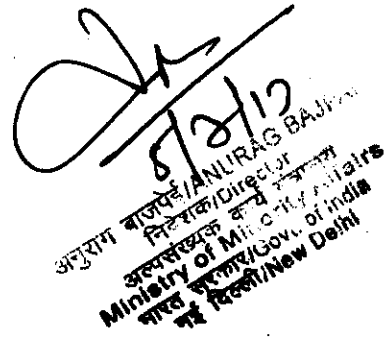 5/2/17
अनुराग बाजपेई/ANURAG
निदेशक/Director
अल्पसंख्यक कार्य मंत्रालय
Ministry of Minority Affairs
भारत सरकार/Govt. of India
नई दिल्ली/New Delhi